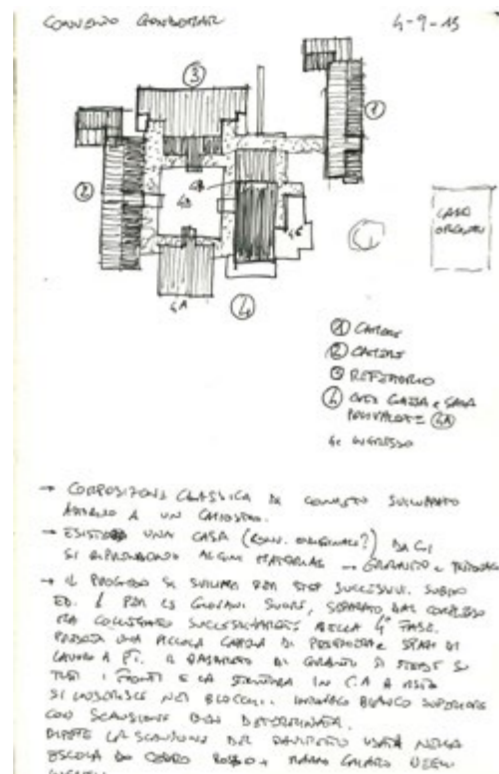 CONVENTO GONDOMAR
4-9-15
3
1
2
4B
4C
4A
4
CASA
① CAMERE
② CAMERE
③ REFETTORIO
④ SALA
POLIVALENTE 4A
4C INGRESSO
→ COMPOSIZIONE CLASSICA DI CONVENTO SVILUPPATO
ATTORNO A UN CHIOSTRO.
→ ESISTEVA UNA CASA ( ORIGINALE?) DA CUI
SI RIPRENDONO ALCUNI MATERIALI → GRANITO E
→ IL PROGETTO SI SVILUPPA PER STEP SUCCESSIVI. SUBITO
ED. 1 PER LE GIOVANI SUORE, SEPARATO DAL COMPLESSO
MA COLLEGATO SUCCESSIVAMENTE NELLA 4° FASE.
UNA PICCOLA DI E SPAZI DI
LAVORO A P.T. IL BASAMENTO DI GRANITO SI SU
TUTTI I FRONTI E LA STRUTTURA IN C.A. A VISTA
SI INSERISCE NEI BLOCCHI. INTONACO BIANCO SUPERIORE
CON SCANSIONE BEN DETERMINATA.
LA SCANSIONE DEL USATA NELLA
ESCOLA DO ROSSO +